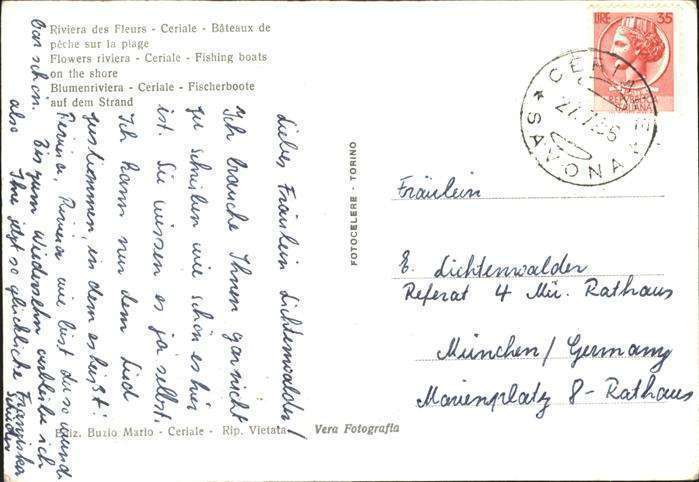 Riviera des Fleurs - Ceriale - Bâteaux de
pêche sur la plage
Flowers riviera - Ceriale - Fishing boats
on the shore
Blumenriviera - Ceriale - Fischerboote
auf dem Strand
Liebes Fräulein Lichtenwalder!
Ich brauche Ihnen gar nicht
zu schreiben wie schön es hier
ist. Sie wissen es ja selbst.
Ich kann nur dem Lied
zustimmen, in dem es heißt:
Riviera, Riviera wie bist du so wunder
bar schön.
Bis zum Wiedersehn verbleibe ich
also Ihre jetzt so glückliche Franziska
Ediz. Buzio Mario - Ceriale - Rip. Vietata
Vera Fotografia
FOTOCELERE - TORINO
LIRE 35
CERIALE
27.7.56
* SAVONA *
Fräulein
E. Lichtenwalder
Referat 4 Mü. Rathaus
München / Germany
Marienplatz 8 - Rathaus